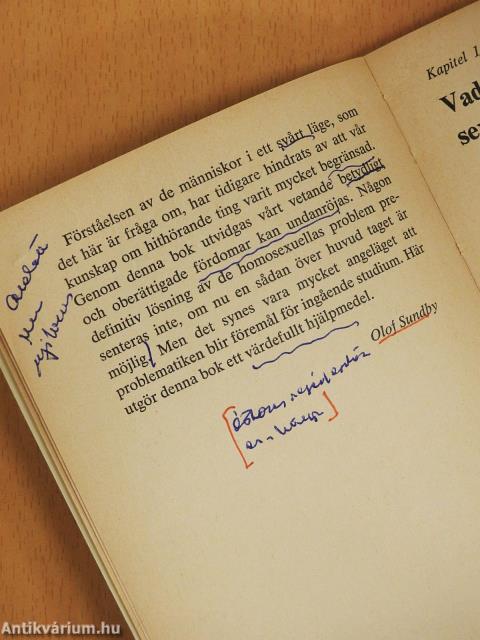 Förståelsen av de människor i ett svårt läge, som
det här är fråga om, har tidigare hindrats av att vår
kunskap om hithörande ting varit mycket begränsad.
Genom denna bok utvidgas vårt vetande betydligt
och oberättigade fördomar kan undanröjas. Någon
definitiv lösning av de homosexuellas problem pre-
senteras inte, om nu en sådan över huvud taget är
möjlig. Men det synes vara mycket angeläget att
problematiken blir föremål för ingående studium. Här
utgör denna bok ett värdefullt hjälpmedel.
Olof Sundby
Kapitel 1
Vad
se
Antikvárium.hu